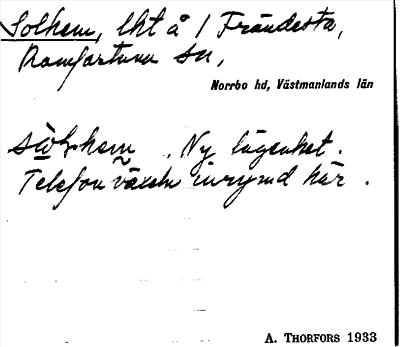 Solhem, lht å 1 Frändesta,
Ramfartuna sn,
Norrbo hd, Västmanlands län
sωl,hem , Ny lägenhet.
Telefonväxeln inrymd här.
A. THORFORS 1933